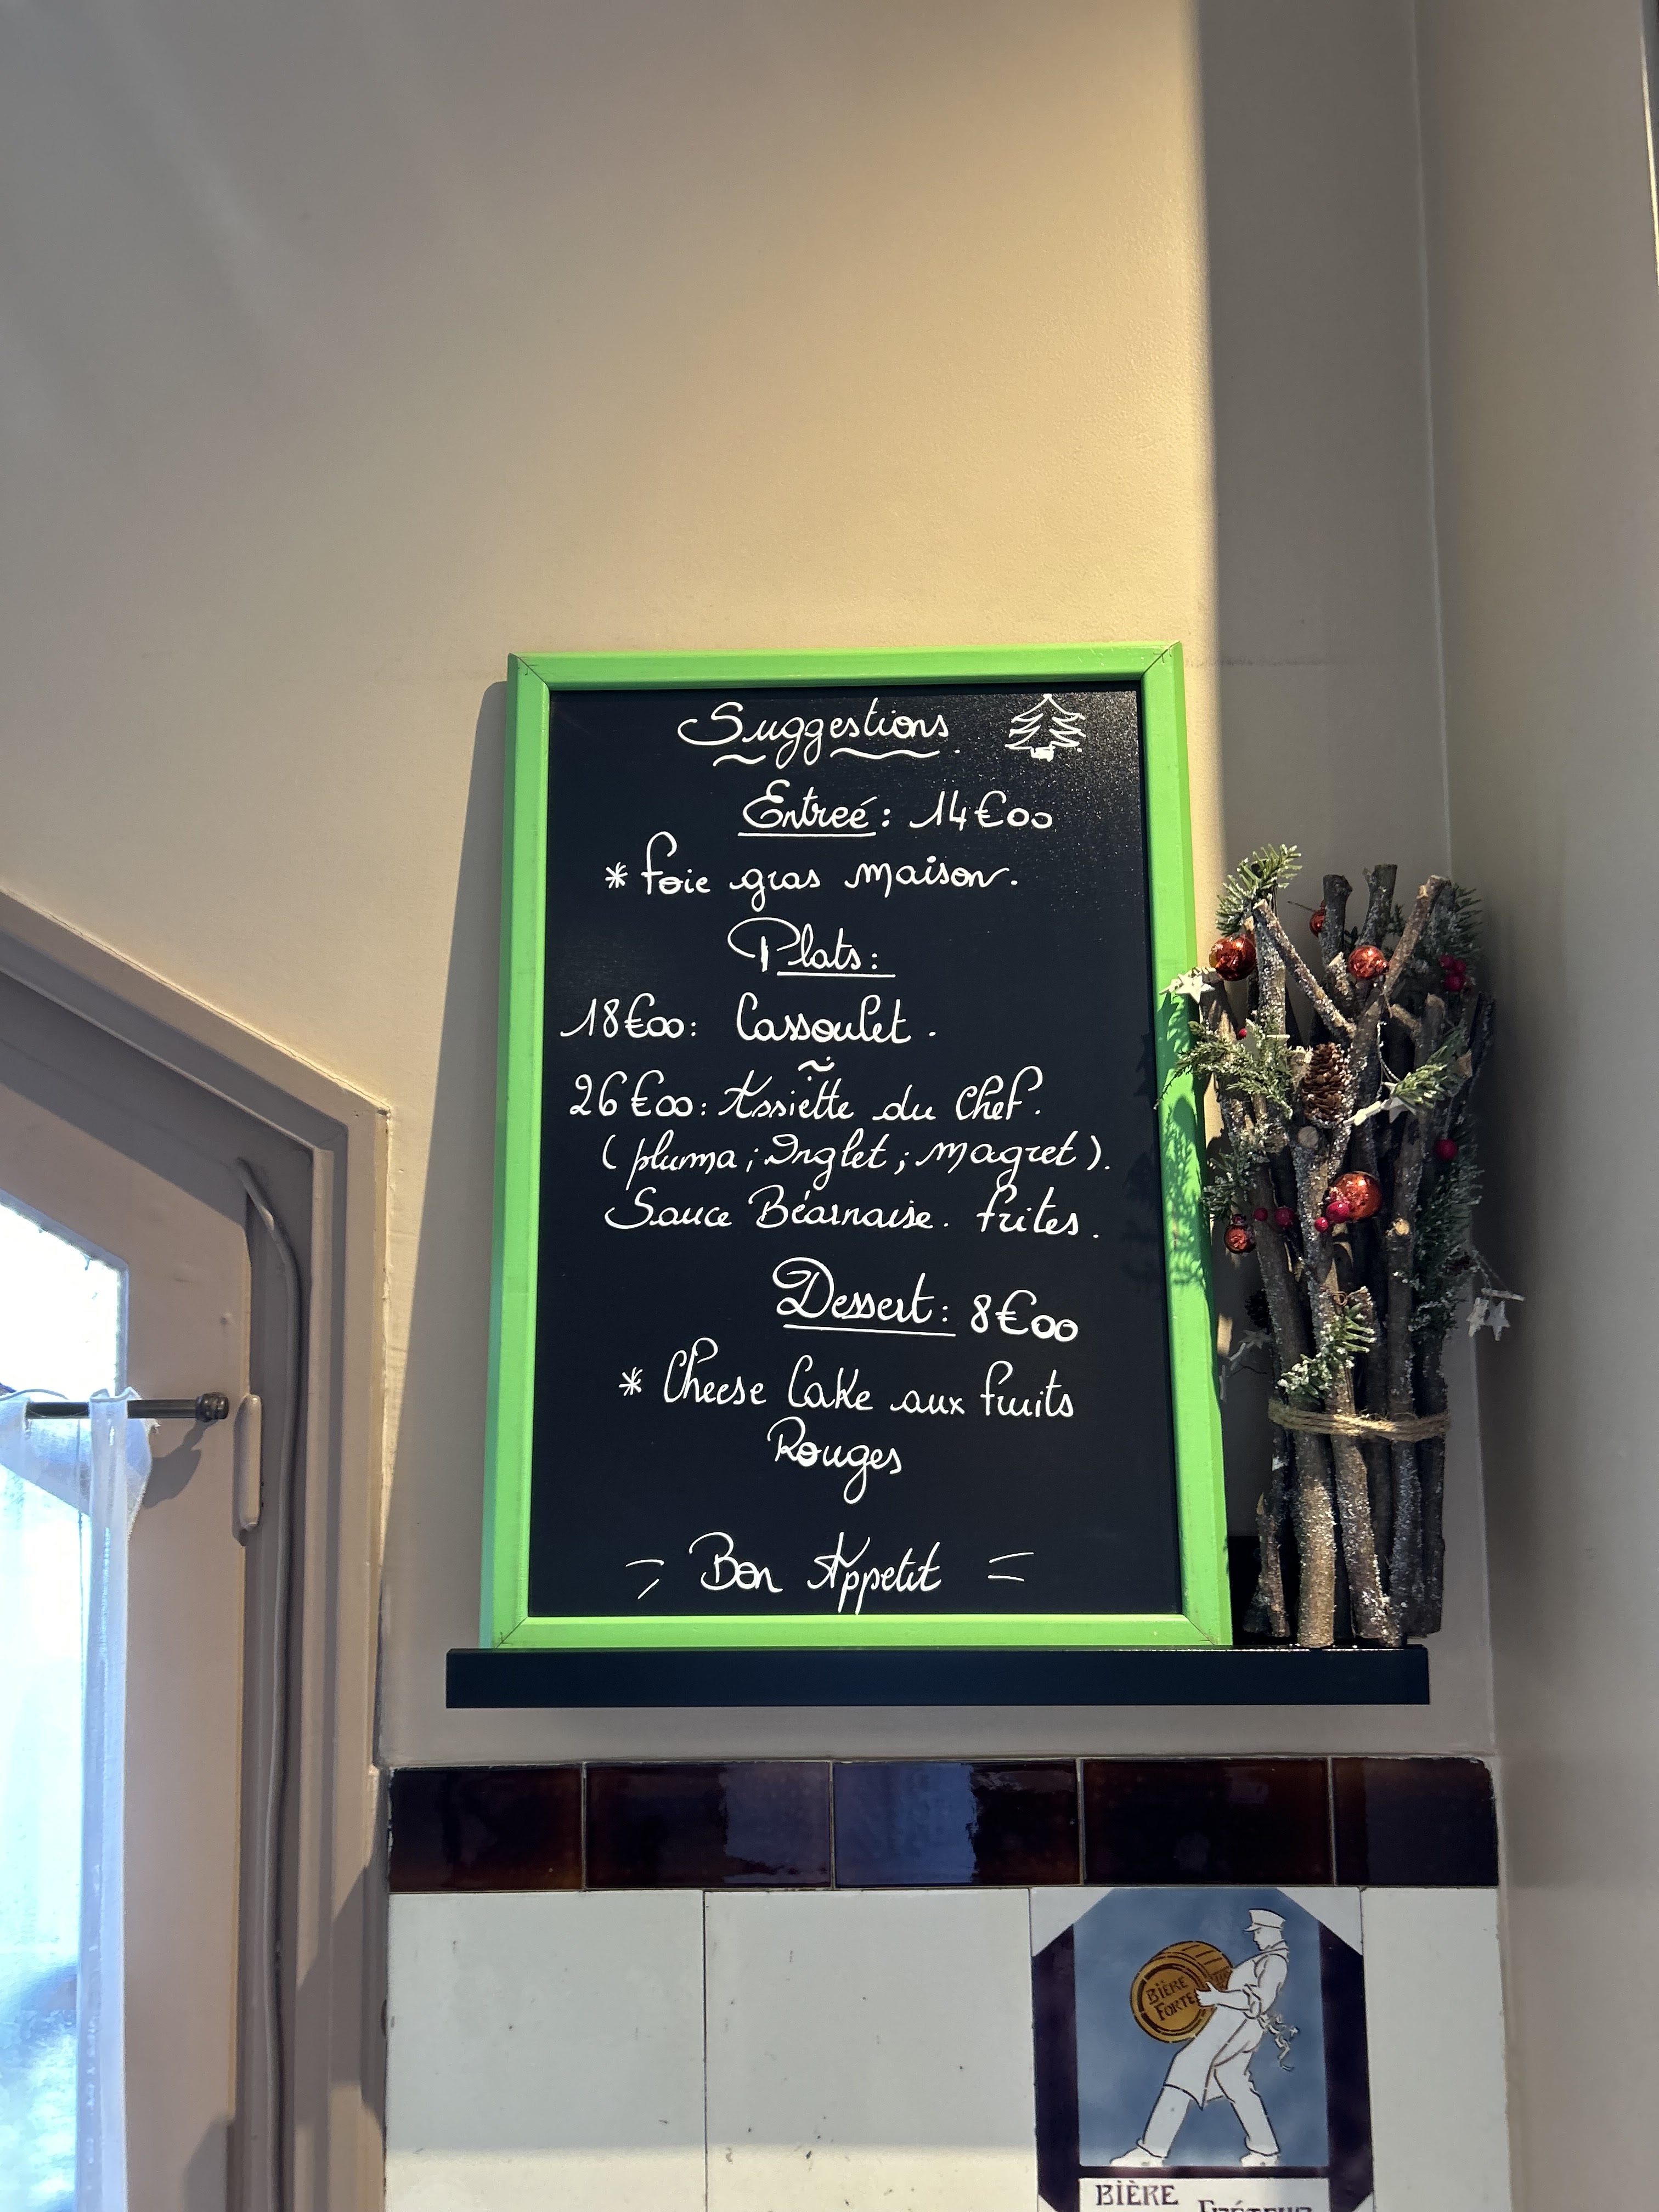 Suggestions.
Entreé : 14€00
* foie gras maison.
Plats :
18€00 : Cassoulet .
~
26€00 : Assiette du Chef.
( pluma ; Onglet ; magret ).
Sauce Béarnaise . frites .
Dessert : 8€00
* Cheese Cake aux fruits
Rouges
Bon Appetit
BIÈRE
FORTE
BIÈRE